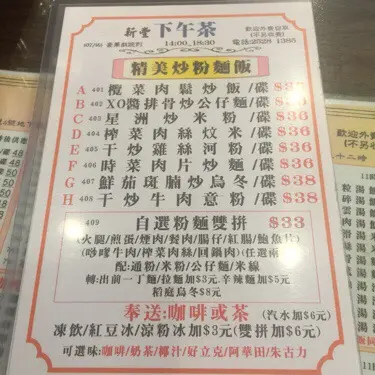 新豐 下午茶 歡迎外賣自取
(不另收費)
14:00_18:30 電話:2528 1385
精美炒粉麵飯
A 401 欖菜肉鬆炒飯/碟
B 402 XO醬排骨炒公仔麵/碟
C 403 星洲炒米粉/碟 $36
D 404 榨菜肉絲炆米/碟 $36
E 405 干炒雞絲河粉/碟 $36
F 406 時菜肉片炒麵/碟 $36
G 407 鮮茄斑腩炒烏冬/碟 $38
H 408 干炒牛肉意粉/碟 $38
409 自選粉麵雙拼 $33
(火腿/煎蛋/煙肉/餐肉/腸仔/紅腸/鮑魚片)
牛肉/榨菜肉絲/回鍋肉)(任選兩
配:通粉/米粉/公仔麵/米線
轉:出前一丁麵/拉麵加$3元.辛辣麵加$5元
稻庭烏冬$8元
奉送:咖啡或茶 (汽水加$6元)
凍飲/紅豆冰/涼粉冰加$3元(雙拼加$6元)
可選味:咖啡/奶茶/椰汁/好立克/阿華田/朱古力